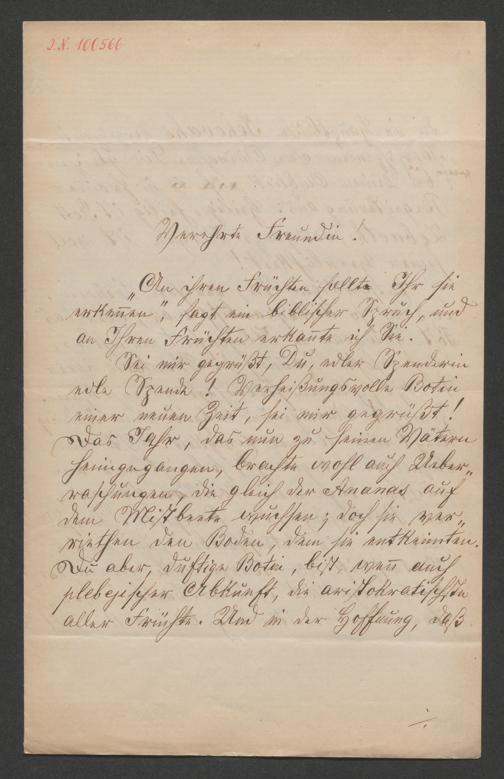 J.N. 100566
Verehrte Freundin!
„An ihren Früchten sollte Ihr sie
erkennen", sagt ein biblischer Spruch, und
an Ihren Früchten erkannte ich Sie.
Sei mir gegrüßt, Du, edler Spenderin
edle Spende! Verheißungsvolle Botin
einer neuen Zeit, sei mir gegrüßt!
Das Jahr, das nun zu seinen Vätern
heimgegangen, brachte wohl auch Ueber„
raschungen, die gleich der Ananas auf
dem Mistbeete wuchsen; doch sie ver„
riethen den Boden, dem sie entkeimten.
Du aber, duftige Botin, bist, wenn auch
plebejischer Abkunft, die aristokratischste
aller Früchte. Und in der Hoffnung, daß
./.